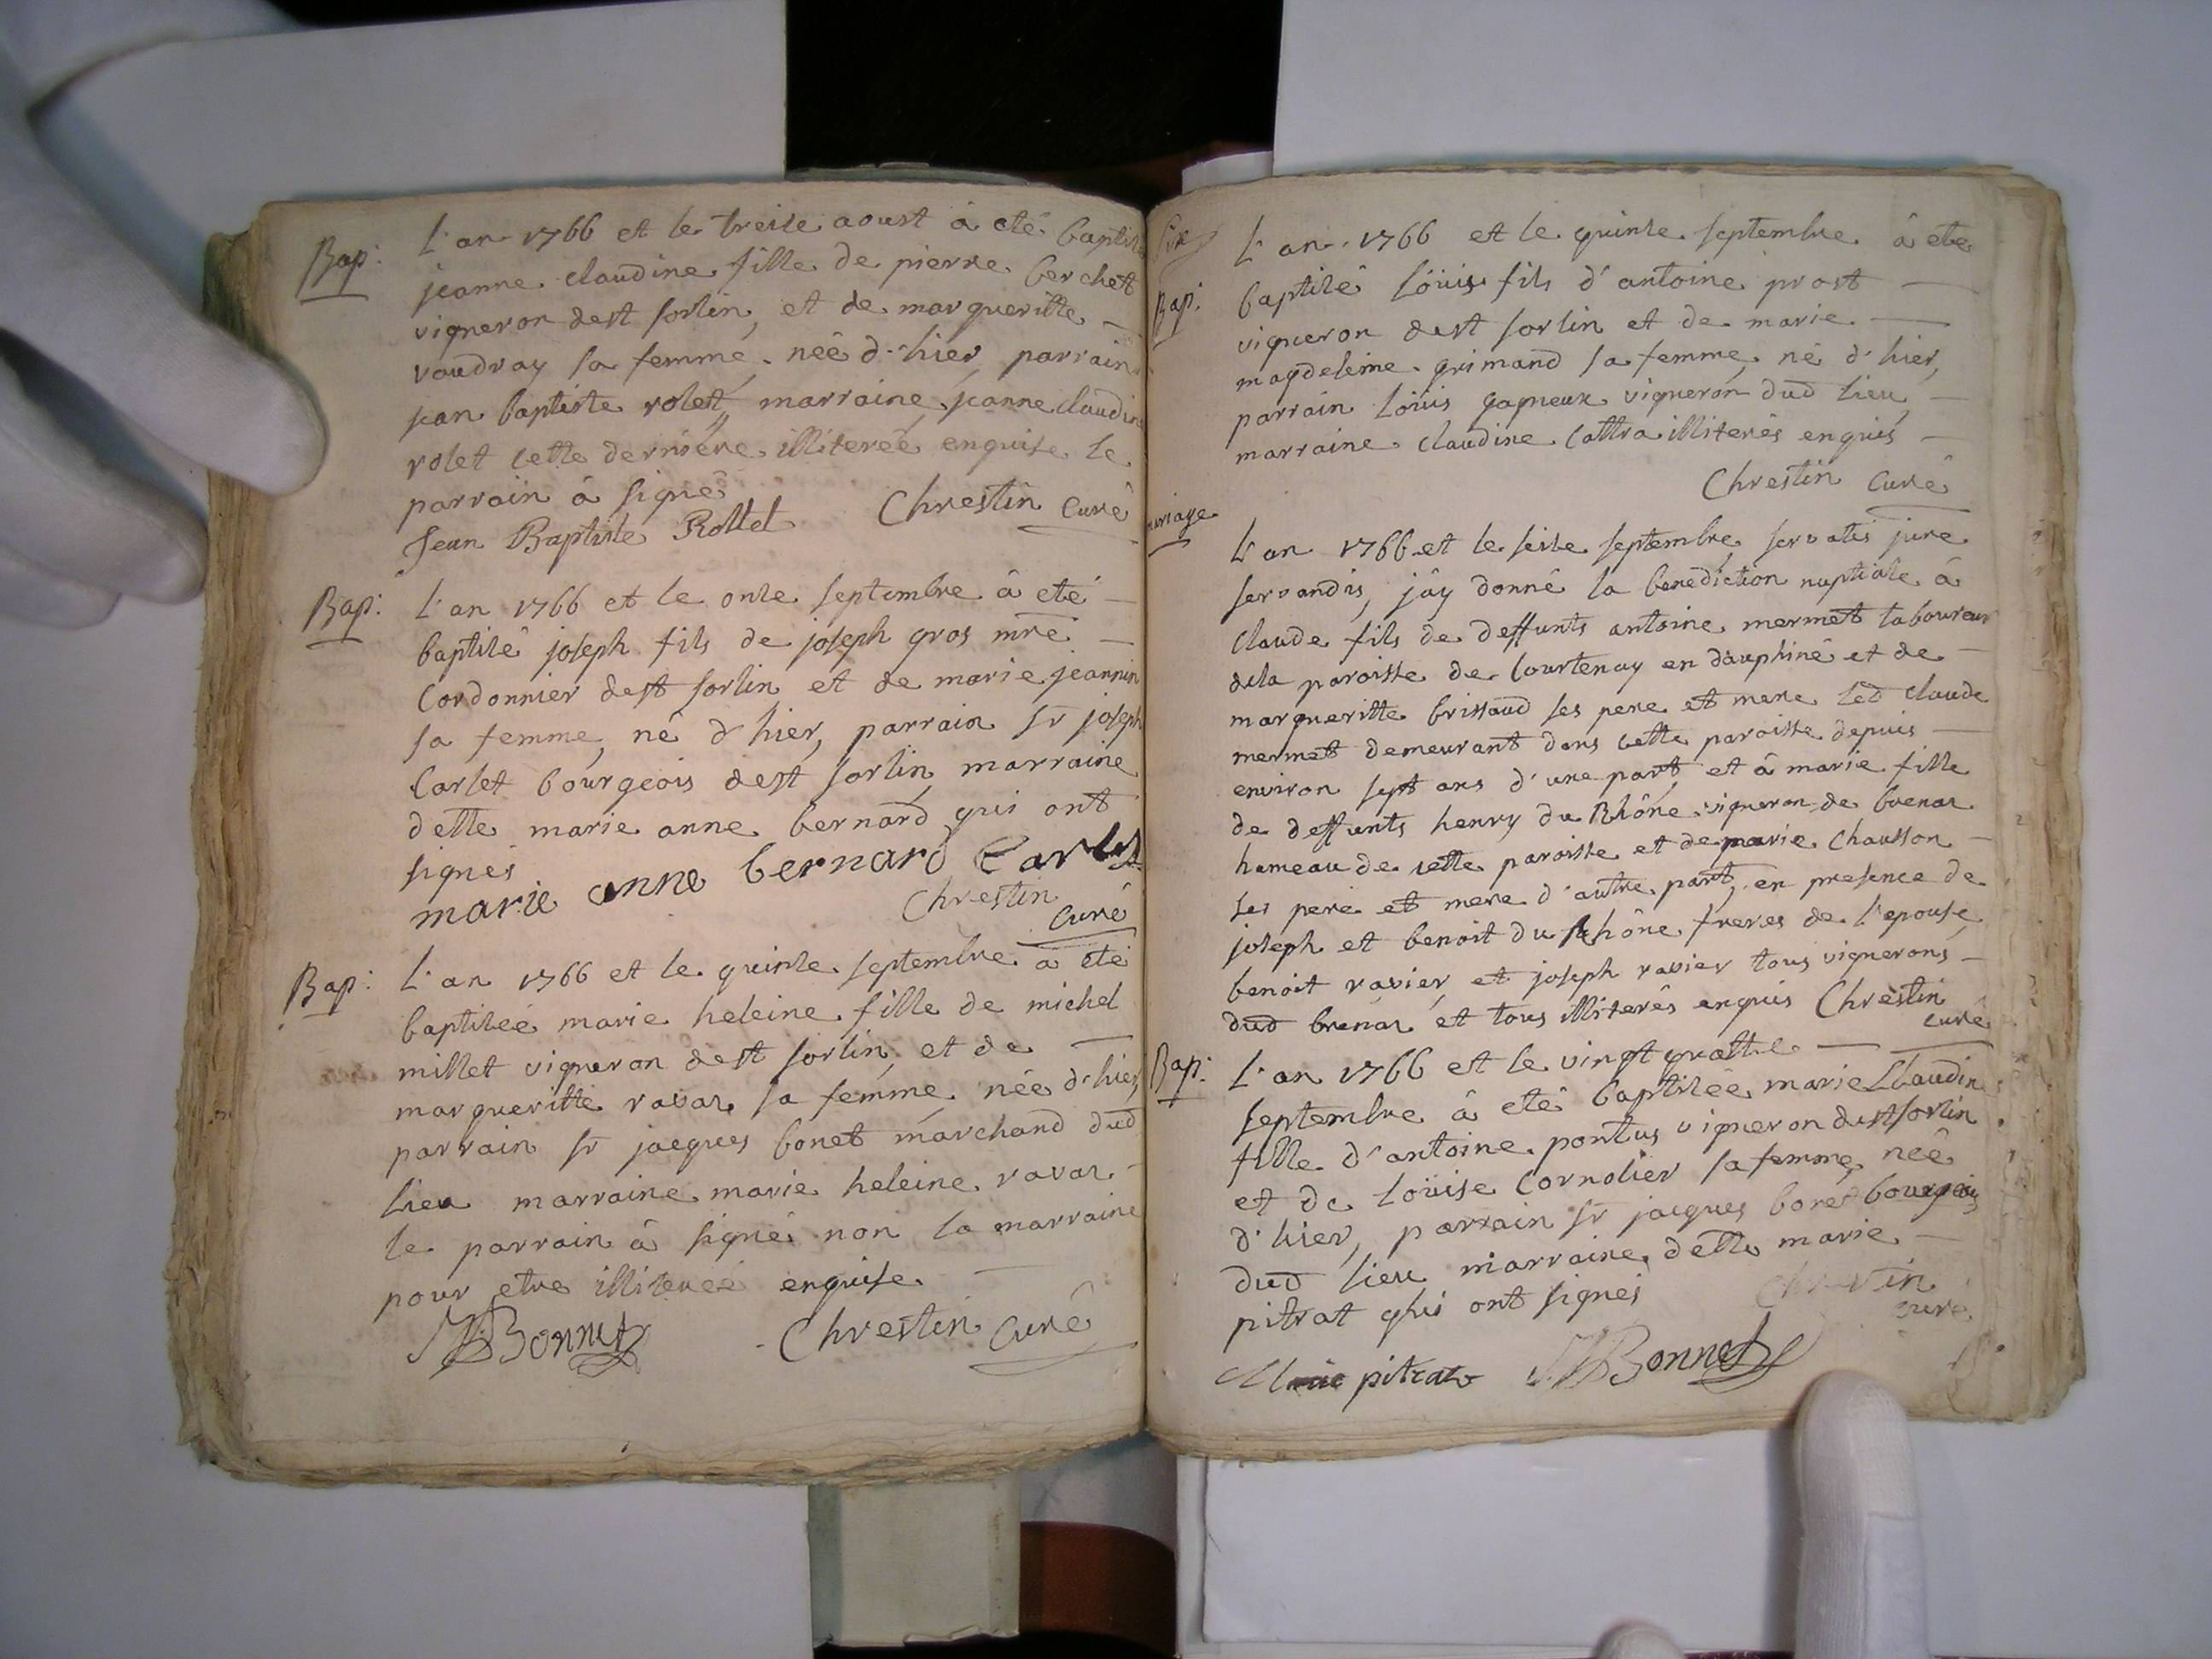 Bap: L'an 1766 et le treize aoust à eté baptisé
jeanne claudine fille de pierre berchet
vigneron dest sorlin, et de margueritte —
vaudray sa femme, née d'hier, parrain
jean baptiste rolet, marraine jeanne claudine
rolet cette derniere illiterée enquise le
parrain à signé
Jean Baptiste Rollet Chrestin curé
Bap: L'an 1766 et le onze septembre à eté —
baptizé joseph fils de joseph gros mre —
cordonnier dest sorlin et de marie jeannin
sa femme, né d'hier, parrain sr joseph
Carlet bourgeois dest sorlin, marraine
delle marie anne bernard qui ont
signés
marie anne bernard Carlet
Chrestin
curé
Bap: L'an 1766 et le quinze septembre à eté
baptizée marie heleine fille de michel
millet vigneron dest sorlin, et de —
margueritte ravaz sa femme, née d'hier,
parrain sr jacques bonet marchand dud
lieu marraine marie heleine ravaz —
le parrain à signé non la marraine
pour etre illiterée enquise —
Bonnet Chrestin curé
L'an 1766 et le quinze septembre à eté
Bap: baptizé loüis fils d'antoine prost —
vigneron dest sorlin et de marie —
magdeleine grimand sa femme, né d'hier,
parrain loüis gagneux vigneron dud lieu, —
marraine claudine cattra illiterés enquis —
Chrestin curé
mariage
L'an 1766 et le seize septembre, servatis jure
servandis, j'ay donné la benediction nuptiale à
claude fils de deffunts antoine mermet laboureur
dela paroisse de courtenay en dauphiné et de —
margueritte brissaud ses pere et mere led claude
mermet demeurant dans cette paroisse depuis —
environ sept ans d'une part, et à marie fille
de deffunts henry du Rhône vigneron de brenaz
hameau de cette paroisse et de marie chausson —
ses pere et mere d'autre part, en presence de
joseph et benoit du Rhône freres de l'epouse,
benoit ravier, et joseph ravier tous vignerons —
dud brenaz et tous illiterés enquis Chrestin
curé
Bap: L'an 1766 et le vingt quattre —
septembre à eté baptizée marie Claudine
fille d'antoine pontus vigneron dest sorlin
et de loüise cornolier sa femme, née
d'hier, parrain sr jacques bonet bourgeois
dud lieu marraine, delle marie —
pitrat qui ont signés Chrestin
curé
Marie pitrat Bonnet